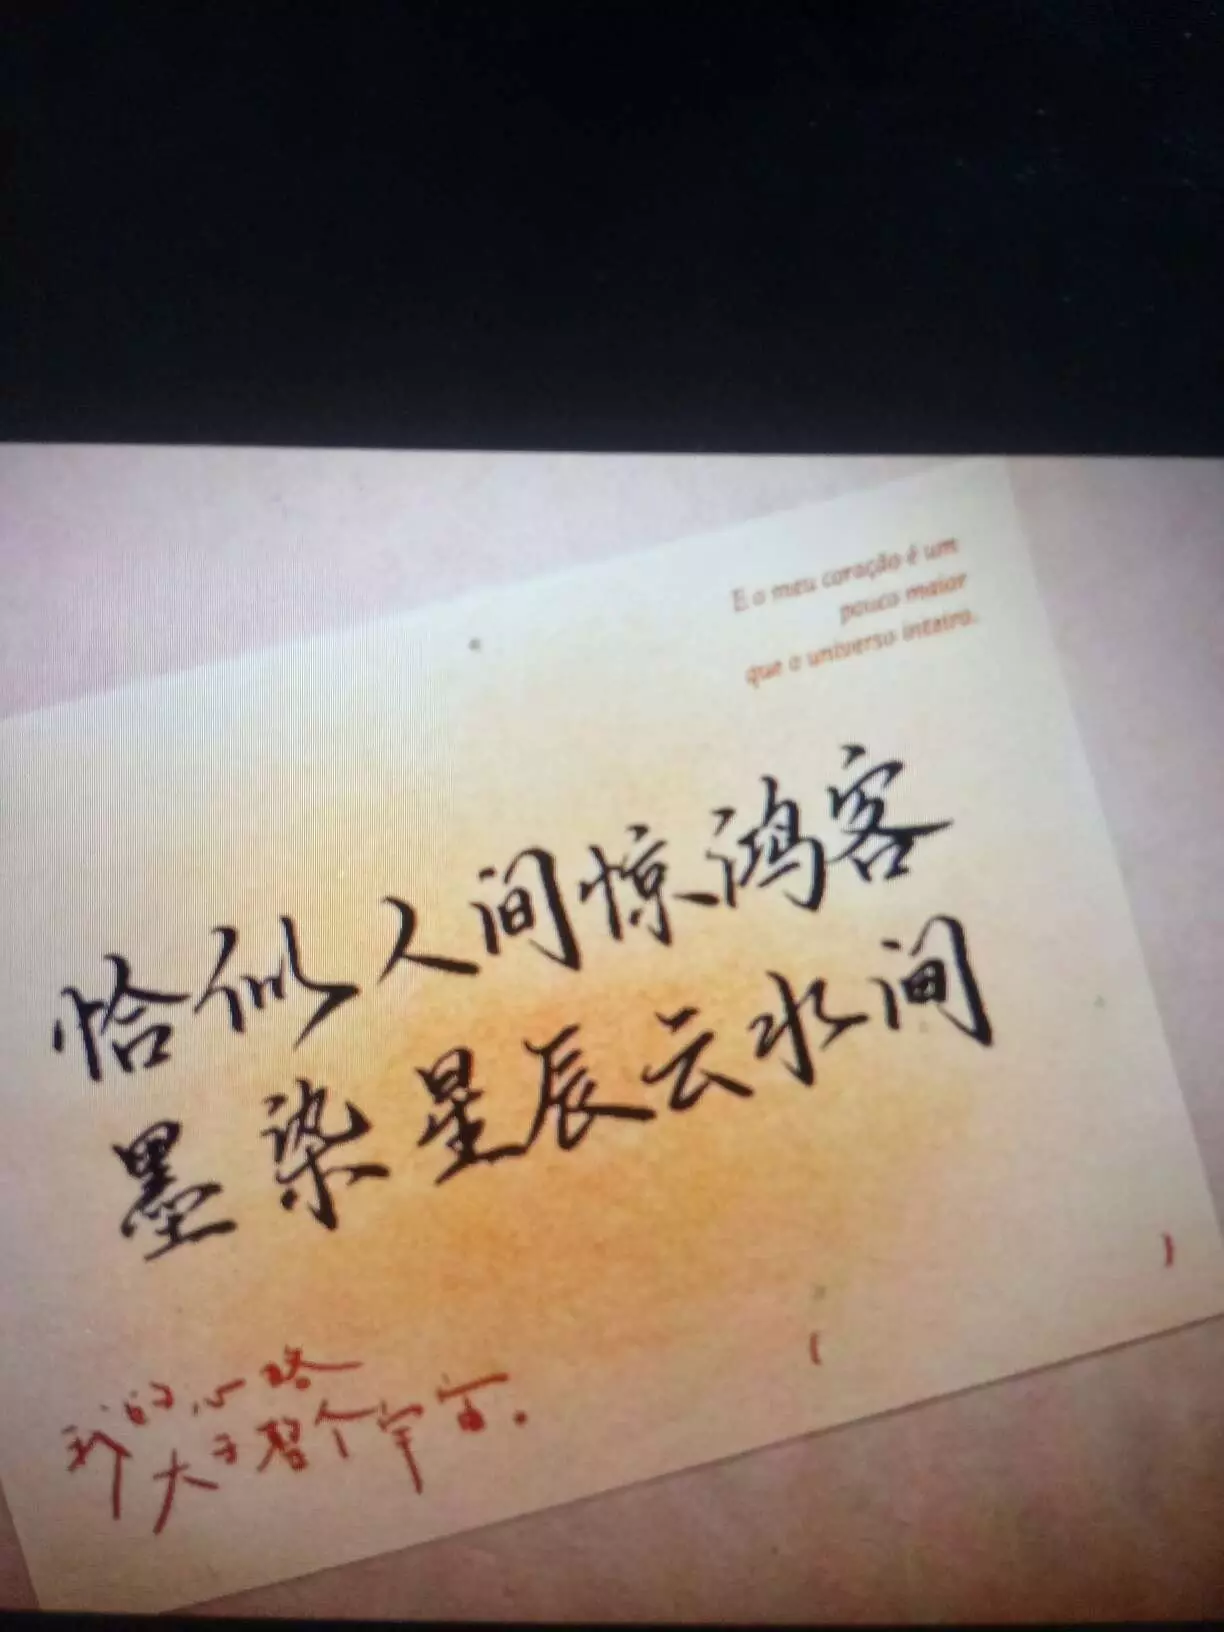 E o meu coração é um
pouco maior
que o universo inteiro.
恰似人间惊鸿客
墨染星辰云水间
我的心略
大于整个宇宙。